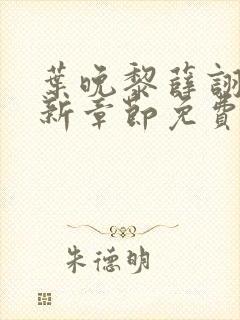 葉晚黎薛詡
新章節免費
朱德明